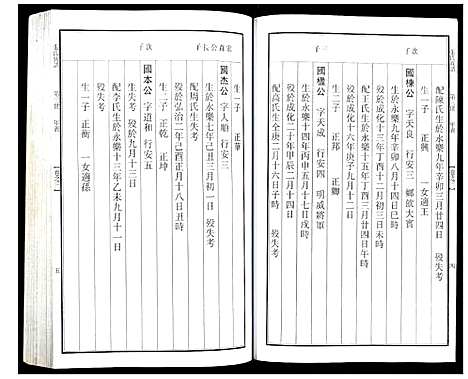 配陳氏生於永樂九年辛卯三月廿四日 歿失考
生一子 正興 一女適王
次子
國棟公 字天良 行安三 鄉飲大賓
生於永樂九年辛卯八月十四日巳時
歿於成化十二月初三日未時
配王氏生於永樂十五年丁酉三月廿四日午時
歿於成化十六年庚子九月十二日
生二子 正邦 正卿
三子
國樑公 字天成 行安四 明威將軍
生於永樂十四年丙申五月十七日戌時
歿於成化二十年甲辰二月十四日
配高氏生全庚二月十六日子時 歿失考
生一子 正華
宏森公長子
國杰公 字人順 行安三
生於永樂七年己丑三月初一日 歿失考
配周氏生失考
歿於弘治二年己酉正月十八日丑時
生二子 正乾 正坤
次子
國本公 字道和 行安五
生失考 歿於九月十三日
配李氏生於永樂十三年乙未九月十一日
生一子 正衡 一女適孫
五